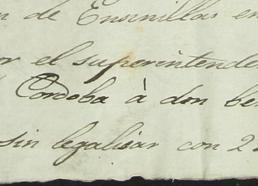 de Ensinillas en
el superintende
Cordoba à don be
sin legalisar con 2